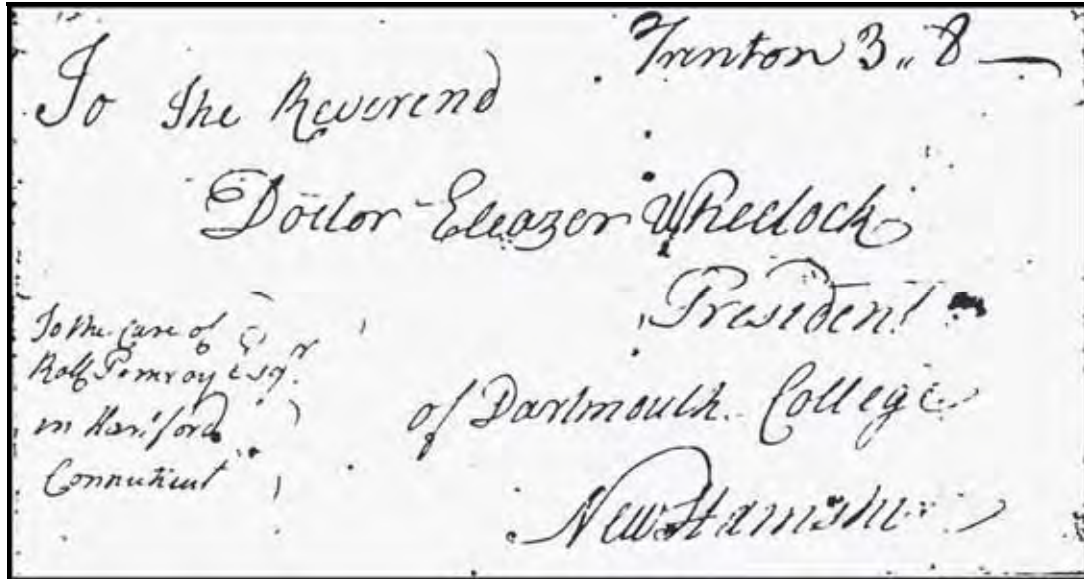 Trenton 3,, 8 —
To The Reverend
Doctor Eleazer Wheelock
President
of Dartmouth College
New Hamshire
To the Care of
Ralf Pomroy Esqr.
in Hartford
Connecticut